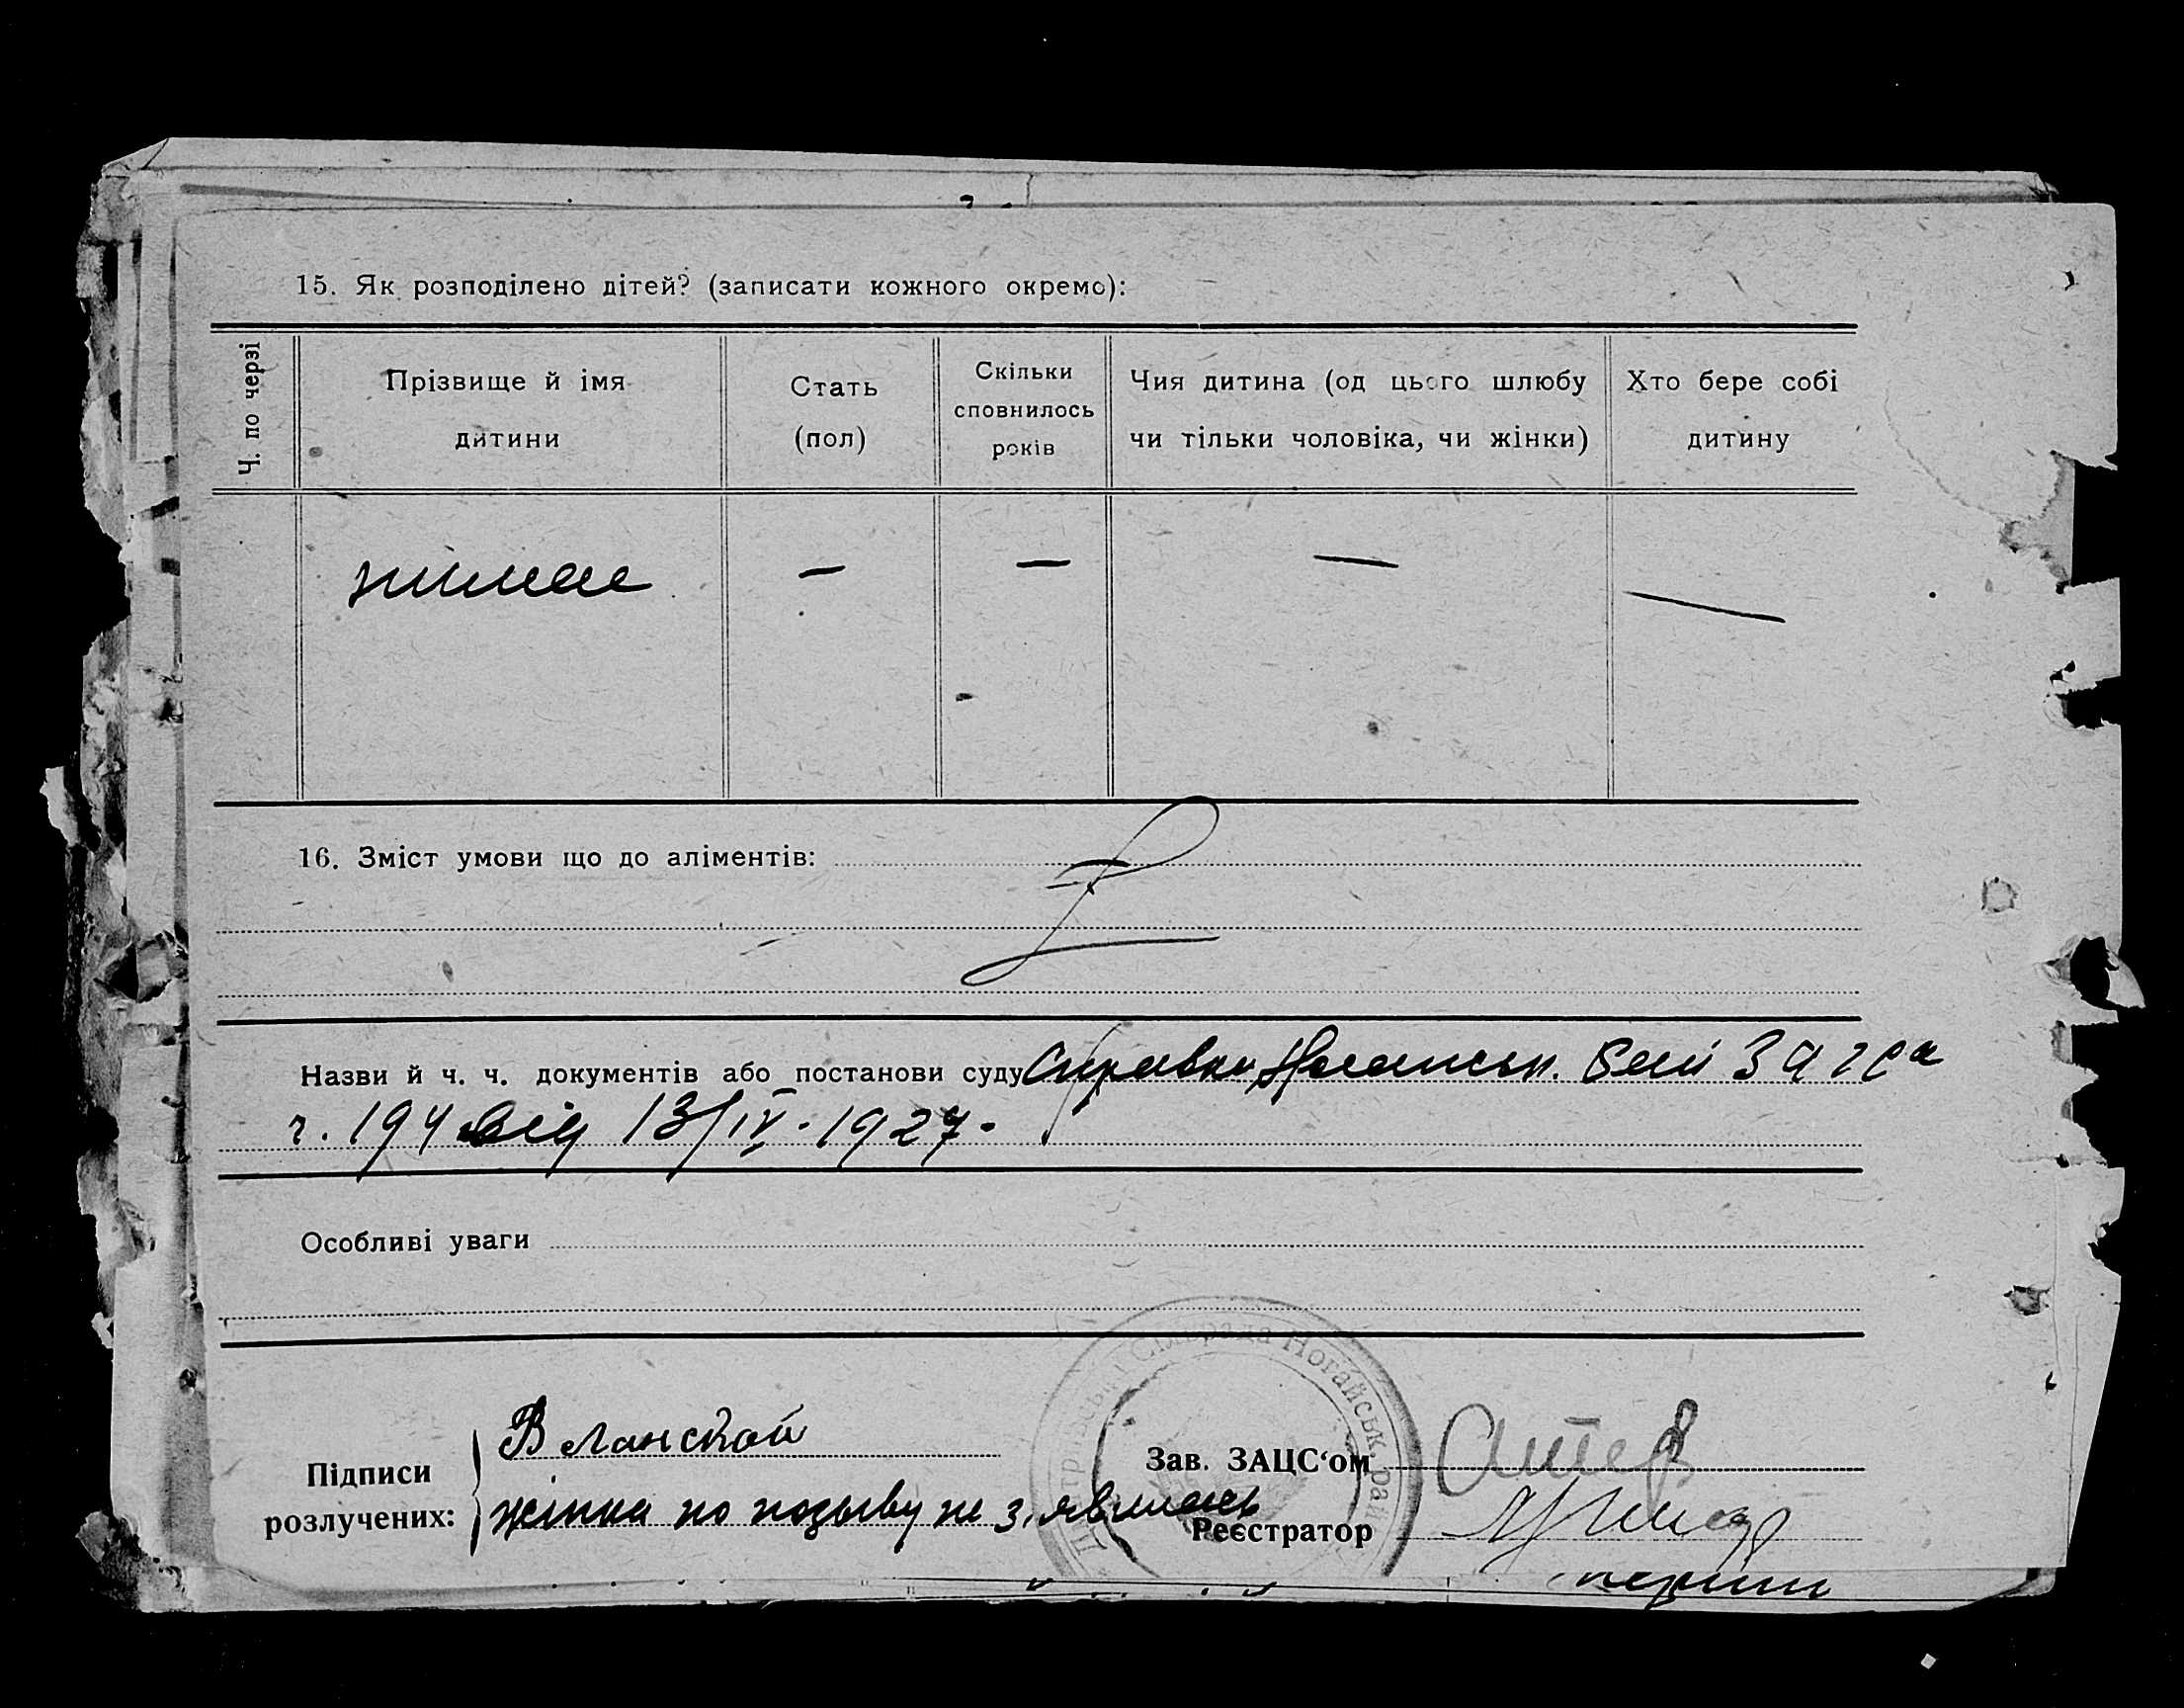 15. Як розподілено дітей? (записати кожного окремо):
Ч. по черзі
Прізвище й імя дитини
Стать (пол)
Скільки сповнилось років
Чия дитина (од цього шлюбу чи тільки чоловіка, чи жінки)
Хто бере собі дитину
нимае — — — —
16. Зміст умови що до аліментів:
Назви й ч. ч. документів або постанови суду Справка Загса
ч. 194 від 13/IV-1927.
Особливі уваги
Сільрада Ногайськ. рай
Підписи розлучених:
В Ланской
жінка по позыву не з,явилась
Зав. ЗАЦС‘ом
Реєстратор